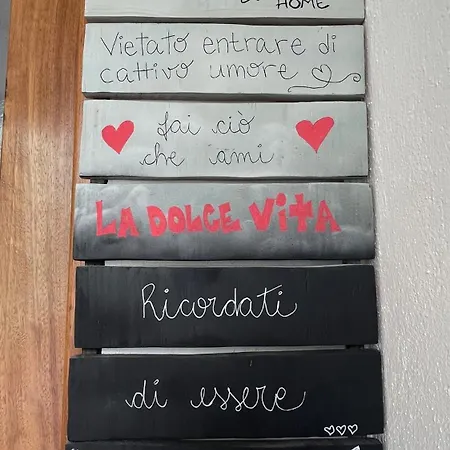 HOME
Vietato entrare di
cattivo umore
fai ciò
che ami
LA DOLCE VITA
Ricordati
di essere